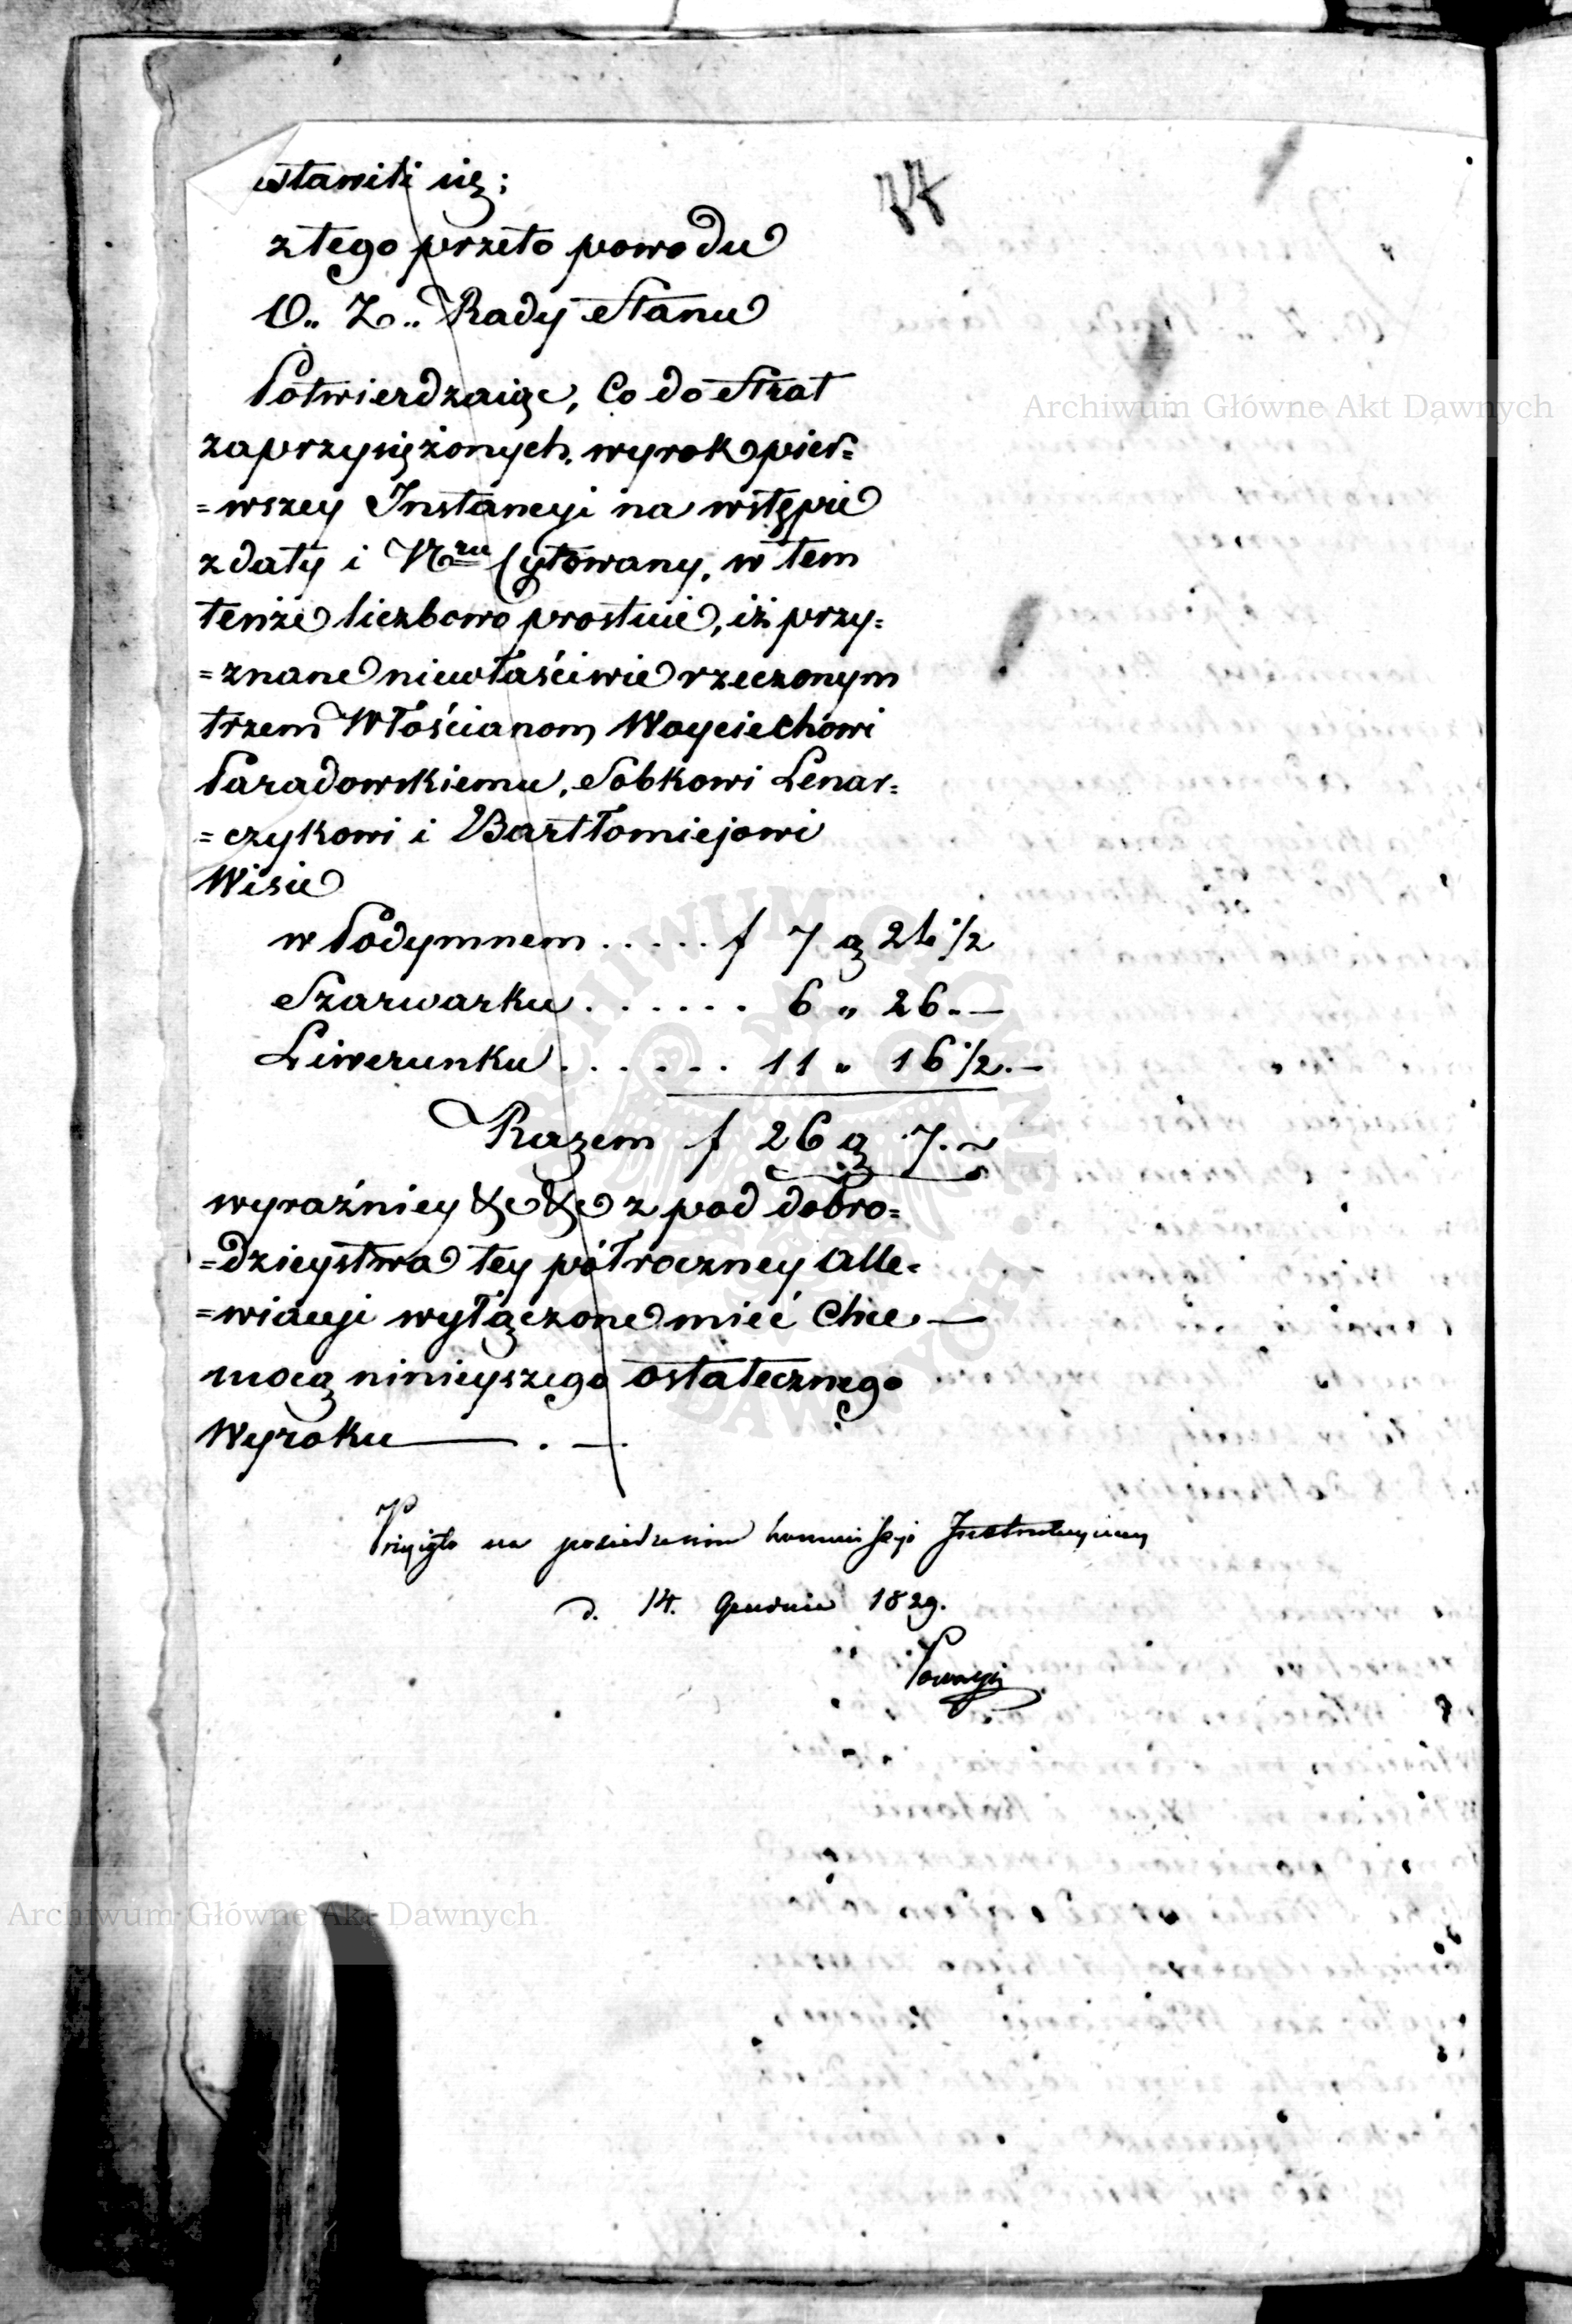 stawili się;
77
z tego przeto powodu
O.. Z.. Rady Stanu
Potwierdzaiąc, Co do Strat
zaprzysiężonych, wyrok pier=
=wszey Instancyi na wstępie
z daty i Nru Cytowany, w tem
tenże liczbowo prostuie, iż przy=
=znane niewłaściwie rzeczonym
trzem Włościanom Woyciechowi
Paradowskiemu, Sobkowi Lenar=
=czykowi i Bartłomiejowi
Wisie
w Podymnem ..... f 7 g 24 1/2
Szarwarku ...... 6 „ 26. —
Liwerunku ...... 11 „ 16 1/2. —
Razem f 26 g 7. ~
wyraźniey &c &c z pod dobro=
=dzieystwa tey półroczney Alle=
=wiacyi wyłączone mieć Chce —
mocą ninieyszego ostatecznego
Wyroku — . —
Przyięto na posiedzeniu Kommissyi Instrukcyiney
d. 14. Grudnia 1829.
Archiwum Główne Akt Dawnych
Archiwum Główne Akt Dawnych
ARCHIWUM GŁÓWNE AKT DAWNYCH